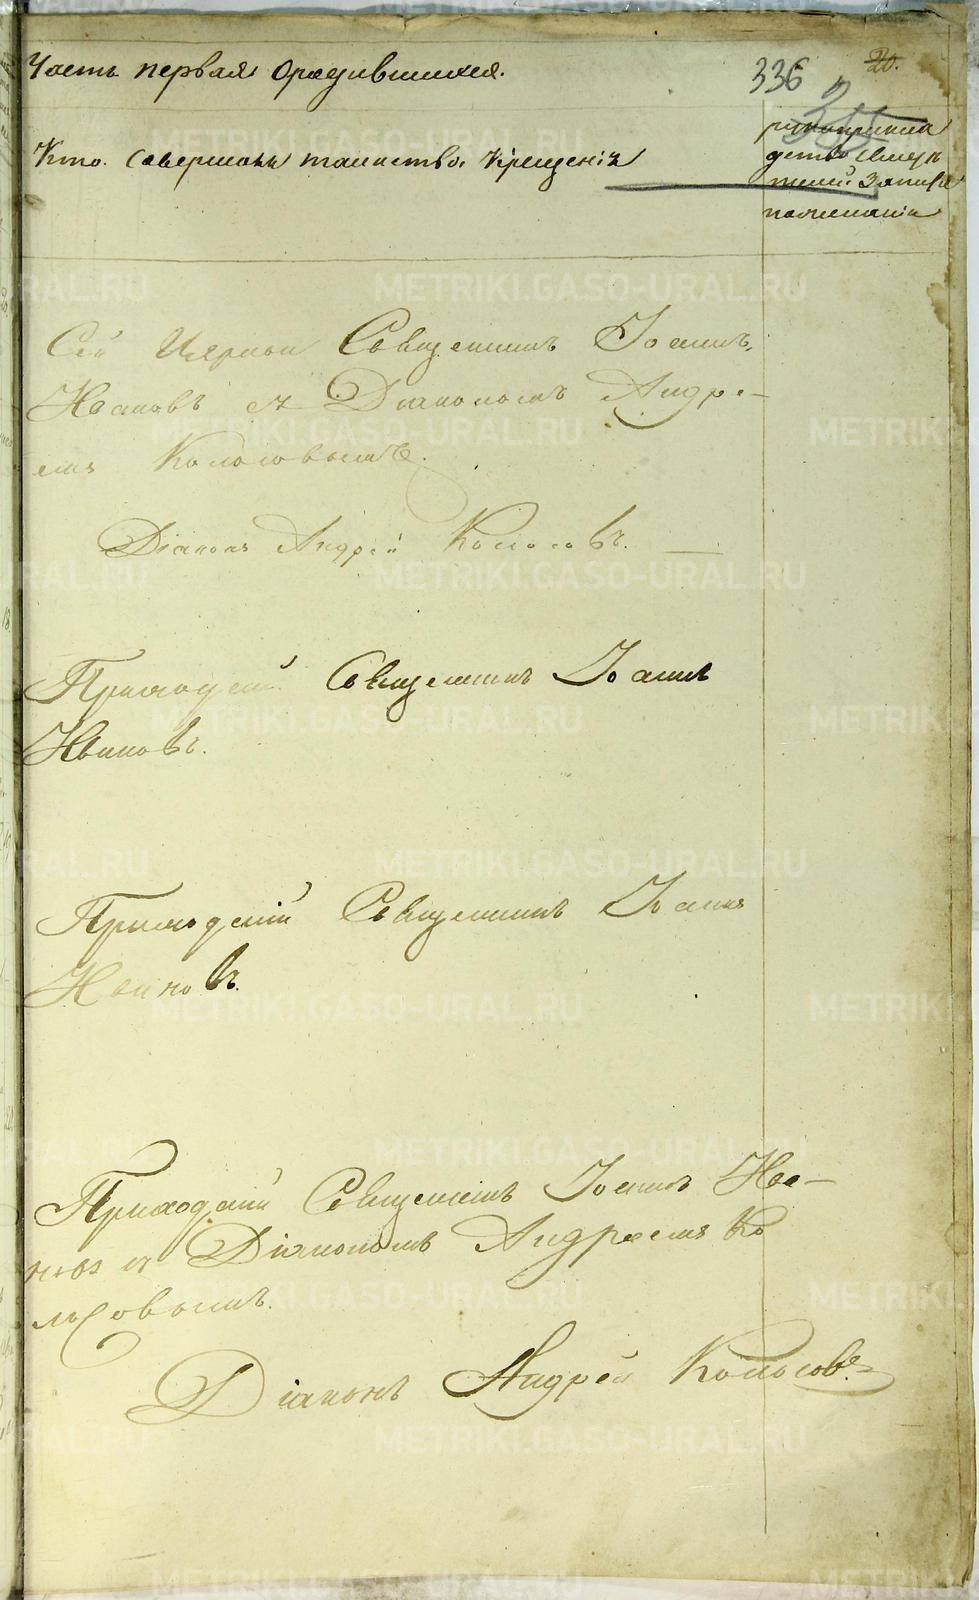 Часть первая Ородившихся.
336
20.
Кто. Совершалъ таинство. Крещенія
рукоприкла
дство свидѣ
телей записи
по желанію
Сей Священникъ Іоаннъ
Ивановъ съ Діакономъ Андре-
емъ Колосовымъ.
Діаконъ Андрей Колосовъ.
Приходскій Священникъ Іоаннъ
Ивановъ.
Приходскій Священникъ Іоаннъ
Ивановъ.
Приходскій Священникъ Іоаннъ Ива-
новъ съ Діакономъ Андреемъ Ко
лосовымъ.
Діаконъ Андрей Колосовъ
METRIKI.GASO-URAL.RU